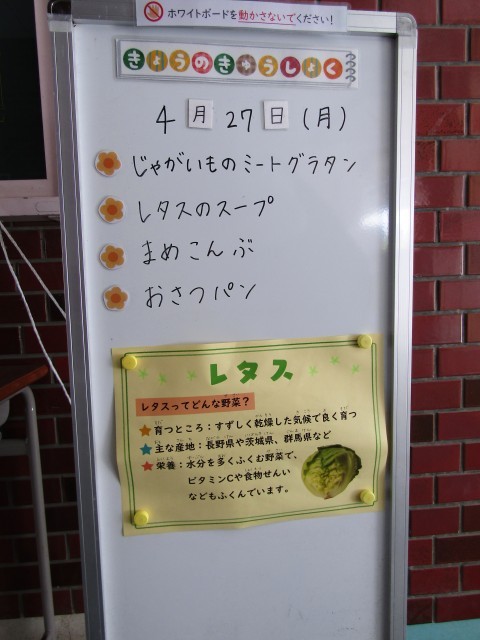 ホワイトボードを動かさないでください！
きょうのきゅうしょく
4月27日(月)
じゃがいものミートグラタン
レタスのスープ
まめこんぶ
おさつパン
レタス
レタスってどんな野菜？
育つところ：すずしく乾燥した気候で良く育つ
主な産地：長野県や茨城県、群馬県など
栄養：水分を多くふくむ野菜で、
ビタミンCや食物せんい
などもふくんでいます。